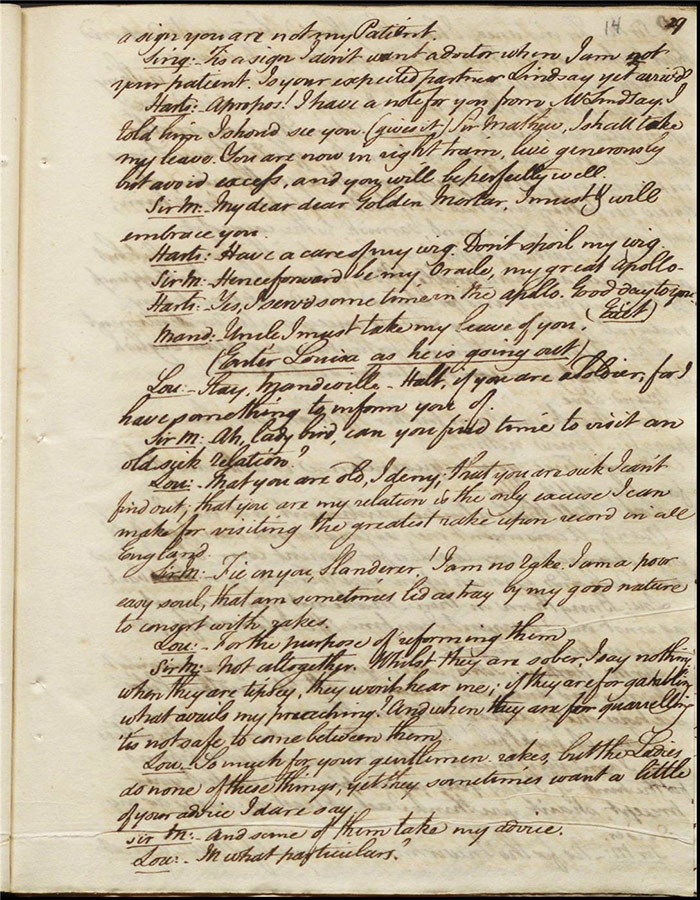 14 29
a sign you are not my Patient.
Sirng:- Tis a sign I don't want a doctor when I am not
your patient. Is your expected partner Lindsay yet arriv'd
Harts:- Apropos! I have a note for you from Mr Lindsay, I
told him I shoud see you (gives it) Sir Mathew, I shall take
my leave. You are now in right train, live generously
but avoid excess, and you will be perfectly well.
Sir M:- My dear dear Golden Mortar, I must & will
embrace you.
Harts: Have a care of my wig. Don't spoil my wig.
Sir M:- Henceforward be my Oracle, my great Apollo-
Harts:- Yes, I serv'd some time in the apollo. Good day to you.
(Exit)
Mand:- Uncle I must take my leave of you.
(Enter Louisa as he is going out)
Lou:- Stay, Mandeville - Halt, if you are a soldier, for I
have something to inform you of.
Sir M:- Ah, lady bird, can you find time to visit an
old sick relation?
Lou:- that you are old, I deny; that you are sick I can't
find out; that you are my relation is the only excuse I can
make for visiting the greatest rake upon record in all
England.
Sir M:- Fie on you, Slanderer! I am no rake. I am a poor
easy soul, that am sometimes led astray by my good nature
to consort with rakes.
Lou:- For the purpose of reforming them
Sir M:- Not altogether. Whilst they are sober, I say nothing
when they are tipsey, they won't hear me; if they are for gambling
what avails my preaching? And when they are for quarrelling
'tis not safe to come between them.
Lou. So much for your gentlemen rakes, but the Ladies
do none of these things, yet they sometimes want a little
of your advice I dare say.
Sir M:- And some of them take my advice.
Lou:- In what particulars?